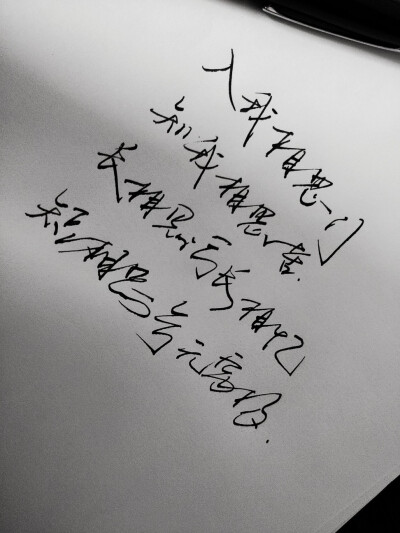 入我相思门
知我相思苦.
长相思兮长相忆
短相思兮无穷极.